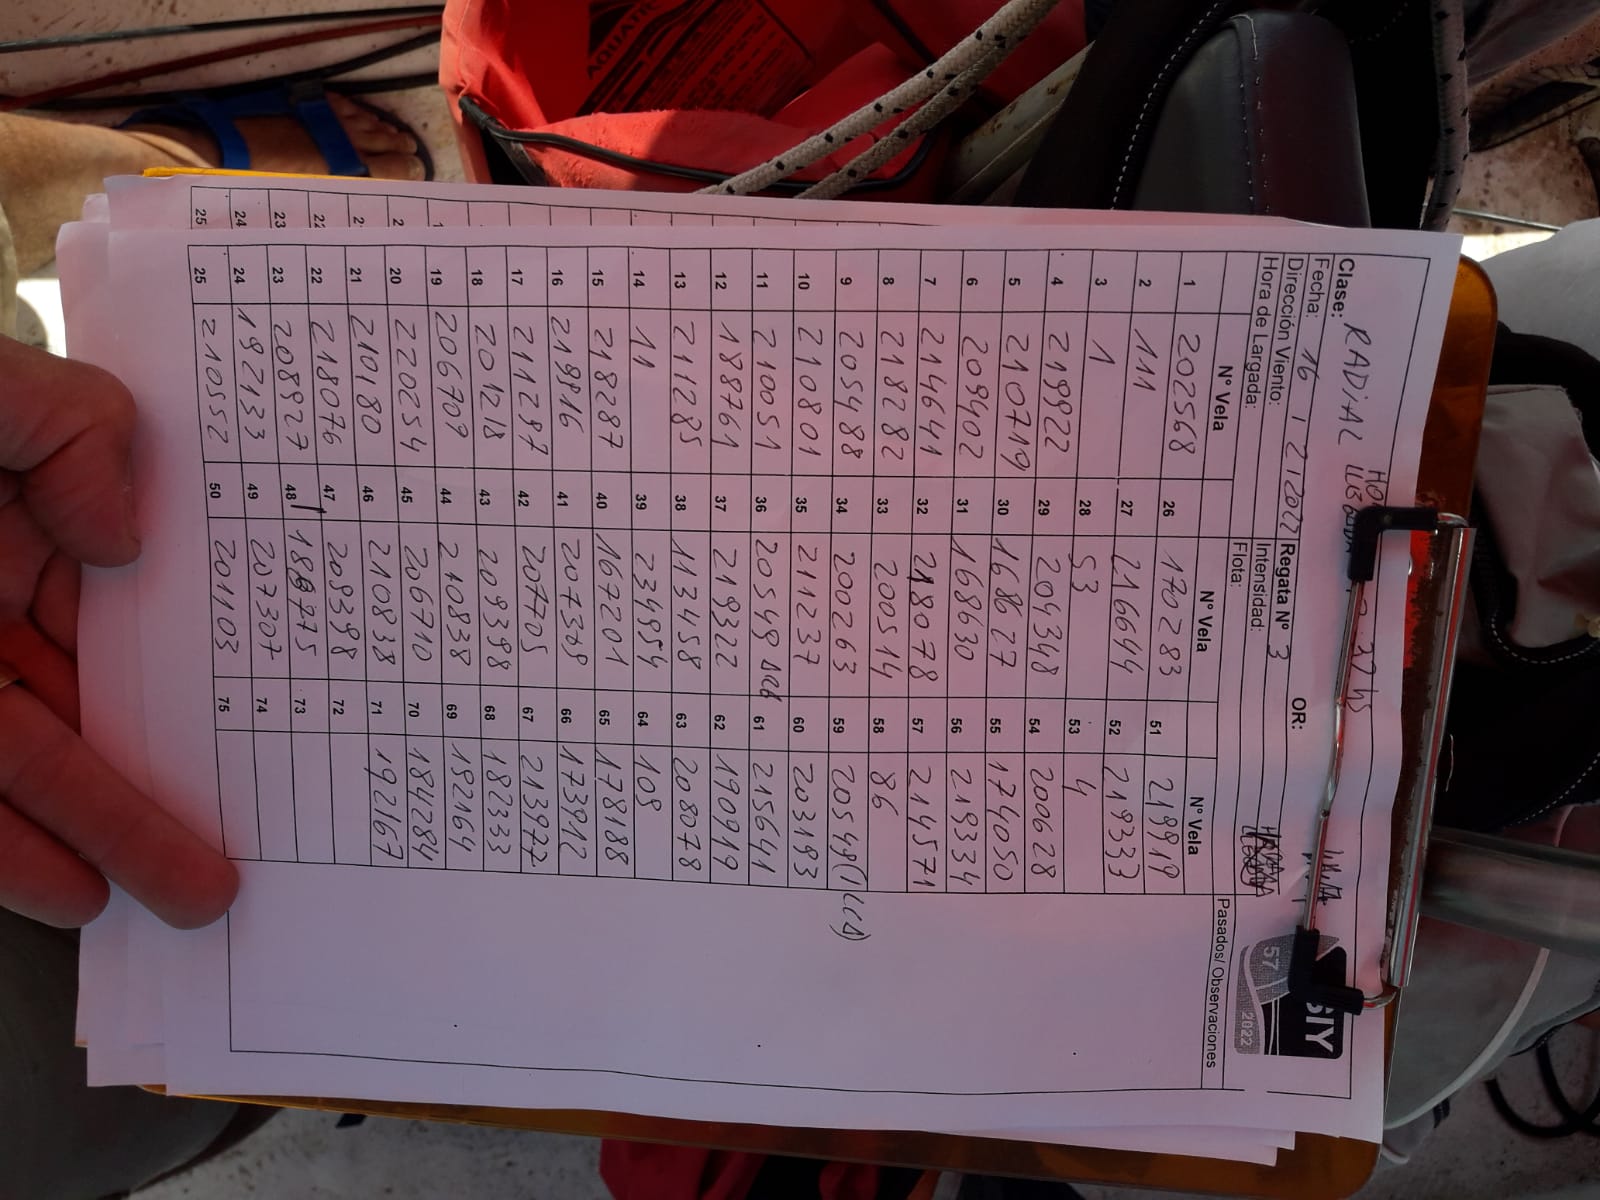 RADIAL
Clase:
Fecha: 16 / 2 / 2022
OR:
Dirección Viento:
Regata Nº 3
Hora de Largada:
Intensidad:
Flota:
SIY
57
2022
Pasados/ Observaciones
N° Vela N° Vela N° Vela
1 202568 26 170283 51 219919
2 111 27 216644 52 219333
3 1 28 53 53 4
4 219922 29 204348 54 200628
5 210719 30 168627 55 174050
6 209402 31 168630 56 219334
7 214641 32 218078 57 214571
8 218282 33 200514 58 86
9 205488 34 200263 59 20549 (ILCA)
10 210801 35 211237 60 203193
11 210051 36 20549 ARG 61 215641
12 188761 37 219322 62 190919
13 211285 38 113458 63 208078
14 11 39 234954 64 109
15 218287 40 167201 65 178188
16 219916 41 207369 66 173912
17 211297 42 207705 67 213977
18 201218 43 209398 68 182333
19 206709 44 210838 69 192164
20 220254 45 206710 70 184284
21 210180 46 210838 71 192167
22 218076 47 209398 72
23 208927 48 188775 73
24 192133 49 207307 74
25 210552 50 201103 75